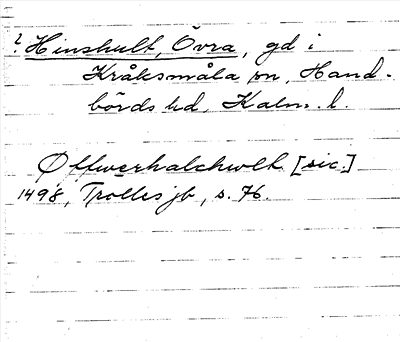 ? Hinshult, Övra, gd i
Kråksmåla sn, Hand-
börds hd, Kalm. l.
Øffwerhalchwlth [sic]
1498, Trolles jb, s. 76.